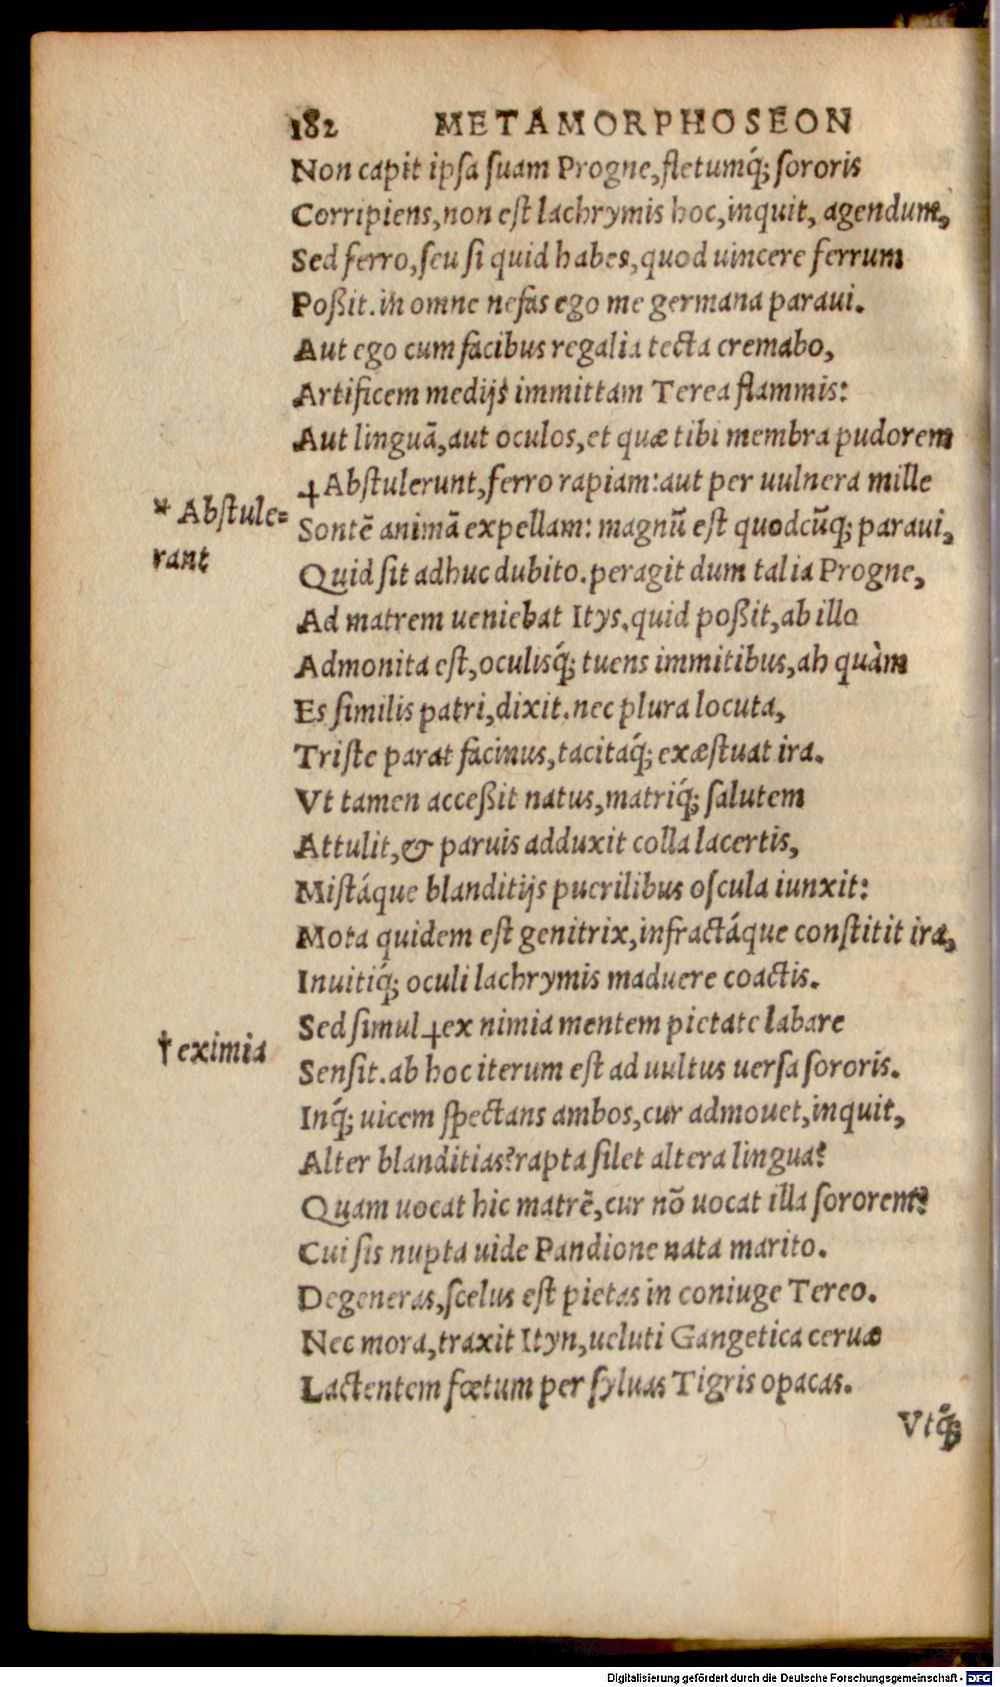 182 METAMORPHOSEON
Non capit ipſa ſuam Progne, fletumq́; ſororis
Corripiens, non eſt lachrymis hoc, inquit, agendum,
Sed ferro, ſeu ſi quid habes, quod uincere ferrum
Poßit. in omne nefas ego me germana paraui.
Aut ego cum facibus regalia tecta cremabo,
Artificem medijs immittam Terea flammis:
Aut linguā, aut oculos, et quæ tibi membra pudorem
┼Abſtulerunt, ferro rapiam: aut per uulnera mille
* Abſtule=
rant
Sontē animā expellam: magnū eſt quodcūq; paraui,
Quid ſit adhuc dubito. peragit dum talia Progne,
Ad matrem ueniebat Itys. quid poßit, ab illo
Admonita eſt, oculisq́; tuens immitibus, ah quàm
Es ſimilis patri, dixit. nec plura locuta,
Triſte parat facinus, tacitaq́; exæſtuat ira.
Vt tamen acceßit natus, matriq́; ſalutem
Attulit, & paruis adduxit colla lacertis,
Miſtáque blanditijs puerilibus oſcula iunxit:
Mota quidem eſt genitrix, infractáque conſtitit ira,
Inuitiq́; oculi lachrymis maduere coactis.
Sed ſimul ┼ex nimia mentem pietate labare
† eximia
Senſit. ab hoc iterum eſt ad uultus uerſa ſororis.
Inq́; uicem ſpectans ambos, cur admouet, inquit,
Alter blanditias? rapta ſilet altera lingua?
Quam uocat hic matrē, cur nō uocat illa ſororem?
Cui ſis nupta uide Pandione nata marito.
Degeneras, ſcelus eſt pietas in coniuge Tereo.
Nec mora, traxit Ityn, ueluti Gangetica ceruæ
Lactentem fœtum per ſyluas Tigris opacas.
Vtq́;
Digitalisierung gefördert durch die Deutsche Forschungsgemeinschaft - DFG